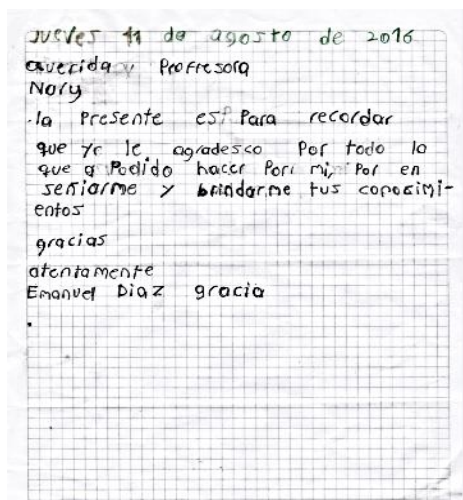 jueves 11 de agosto de 2016
querida Proffesora
Nory
la Presente es Para recordar
que yo le agradesco Por todo lo
que a Podido hacer Por mi, Por en
señarme y brindarme tus conosimi-
entos
gracias
atentamente
Emanuel Diaz gracia